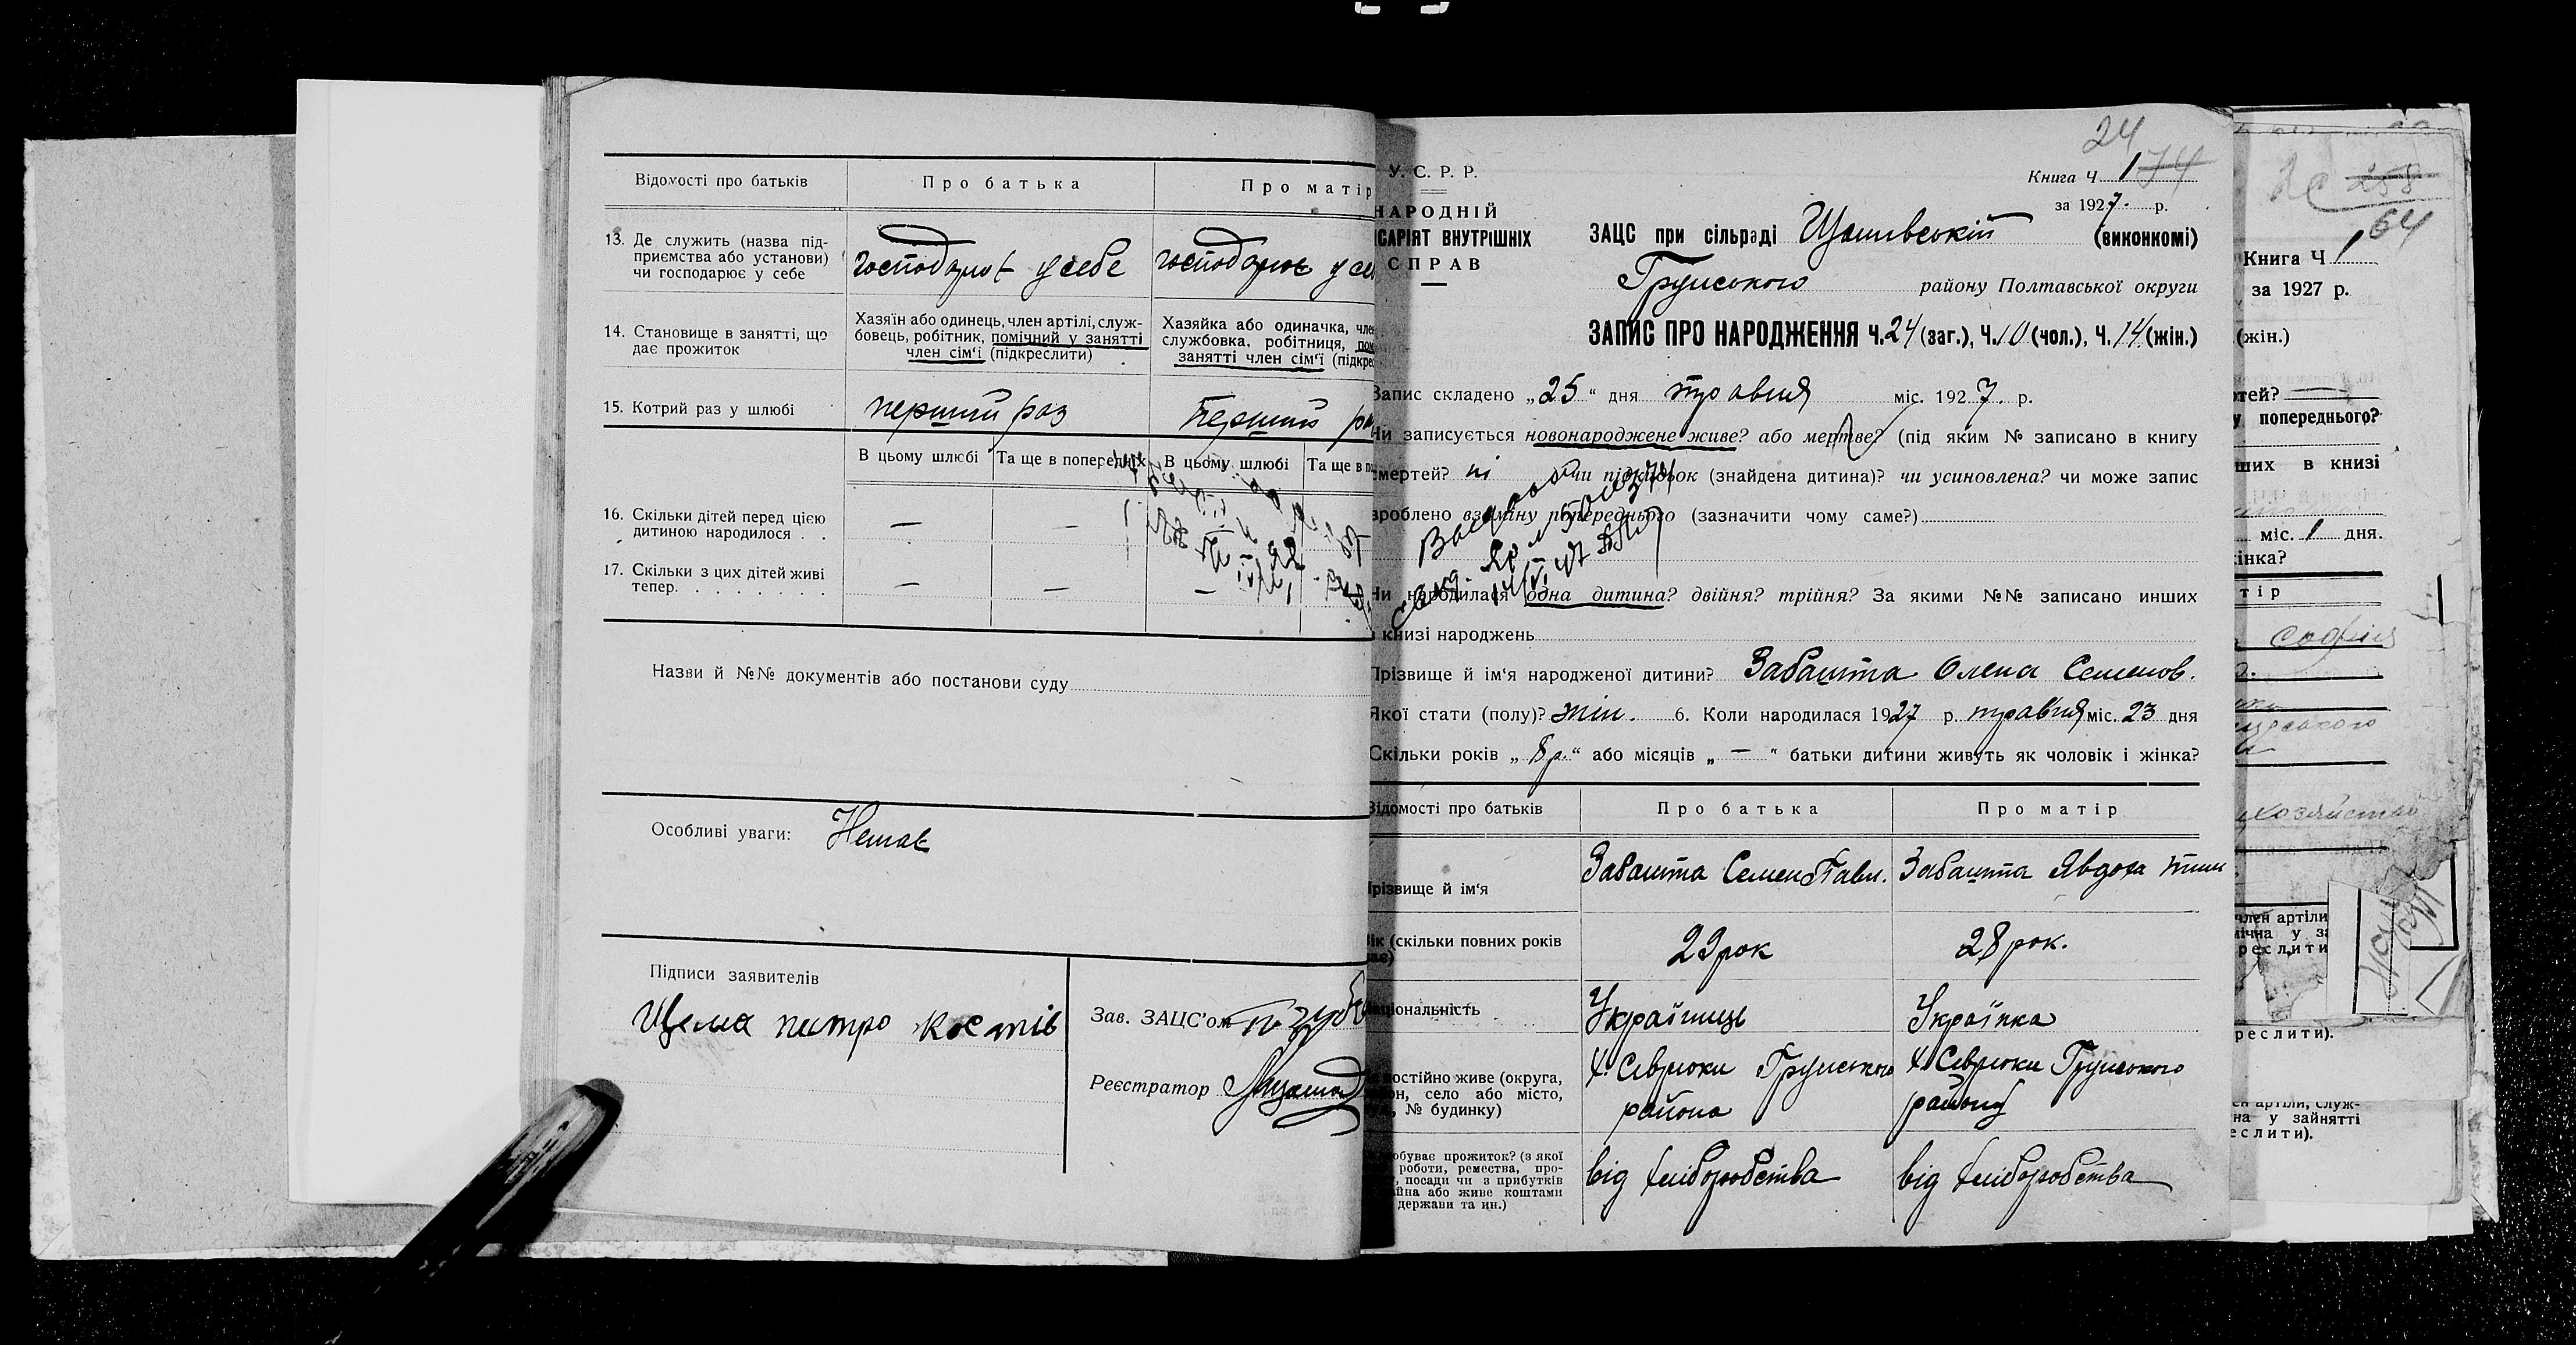 Відомості про батьків
Про батька
Про матір
13. Де служить (назва під-
приємства або установи)
чи господарює у себе
господарює у себе
господарює у се
14. Становище в занятті, що
дає прожиток
Хазяїн або одинець, член артілі, служ-
бовець, робітник, помічний у занятті
член сім'ї (підкреслити)
Хазяйка або одиначка, член
службовка, робітниця,
занятті член сім'ї (підкре
15. Котрий раз у шлюбі
перший раз
Перший раз
В цьому шлюбі
Та ще в попередніх
В цьому шлюбі
Та ще в по
16. Скільки дітей перед цією
дитиною народилося . .
—
—
17. Скільки з цих дітей живі
тепер. . . . . . . .
—
—
—
Назви й №№ документів або постанови суду
Особливі уваги: Немає
Підписи заявителів
Щема петро костів
Зав. ЗАЦС'ом
Реєстратор
24
Книга Ч 1 74
за 1927. р.
У. С. Р. Р.
НАРОДНІЙ
ІСАРІЯТ ВНУТРІШНІХ
СПРАВ
ЗАЦС при сільраді (виконкомі)
Грунського району Полтавської округи
ЗАПИС ПРО НАРОДЖЕННЯ Ч. 24 (заг.), Ч. 10 (чол.), Ч. 14 (жін.)
Запис складено „25“ дня травня міс. 1927. р.
Чи записується новонароджене живе? або мертве? (під яким № записано в книгу
смертей? ні чи підкидьок (знайдена дитина)? чи усиновлена? чи може запис
зроблено взаміну попереднього (зазначити чому саме?)
Чи народилася одна дитина? двійня? трійня? За якими №№ записано инших
в книзі народжень
Прізвище й ім'я народженої дитини? Забашта Олена Семенов.
Якої стати (полу)? жін. 6. Коли народилася 1927 р. травня міс. 23 дня
Скільки років „8 р.“ або місяців „—“ батьки дитини живуть як чоловік і жінка?
Відомості про батьків
Про батька
Про матір
Прізвище й ім'я
Забашта Семен Павл.
Забашта Явдоха тим
Вік (скільки повних років
має)
29 рок
28 рок.
Національність
Українець
Українка
постійно живе (округа,
он, село або місто,
№ будинку)
х. Севрюки Грунського
района
х. Севрюки Грунського
району
обуває прожиток? (з якої
роботи, ремества, про-
посади чи з прибутків
йна або живе коштами
держави та ин.)
від хліборобства
від хліборобства
258
64
Книга Ч 1
за 1927 р.
(жін.)
ртей?
у попереднього?
ших в книзі
міс. 1 дня.
інка?
тір
софія
хозяйство
член артіли
мічна у за
реслити
реслити).
ен артіли, служ-
на у зайнятті
еслити).